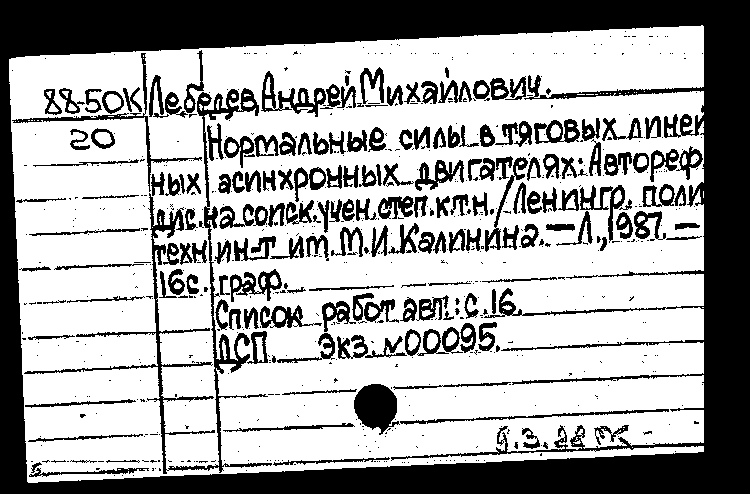 88-50К Лебедев, Андрей Михайлович.
20 Нормальные силы в тяговых линей
ных асинхронных двигателях: Автореф.
дис. на соиск. учен. степ. к.т.н. / Ленингр. поли
техн ин-т им. М.И. Калинина. — Л., 1987. —
16с. граф.
Список работ авт.: с. 16.
ДСП. Экз. №00095.